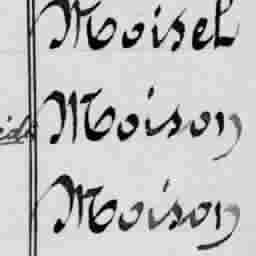 Moisel
Moison
Moison